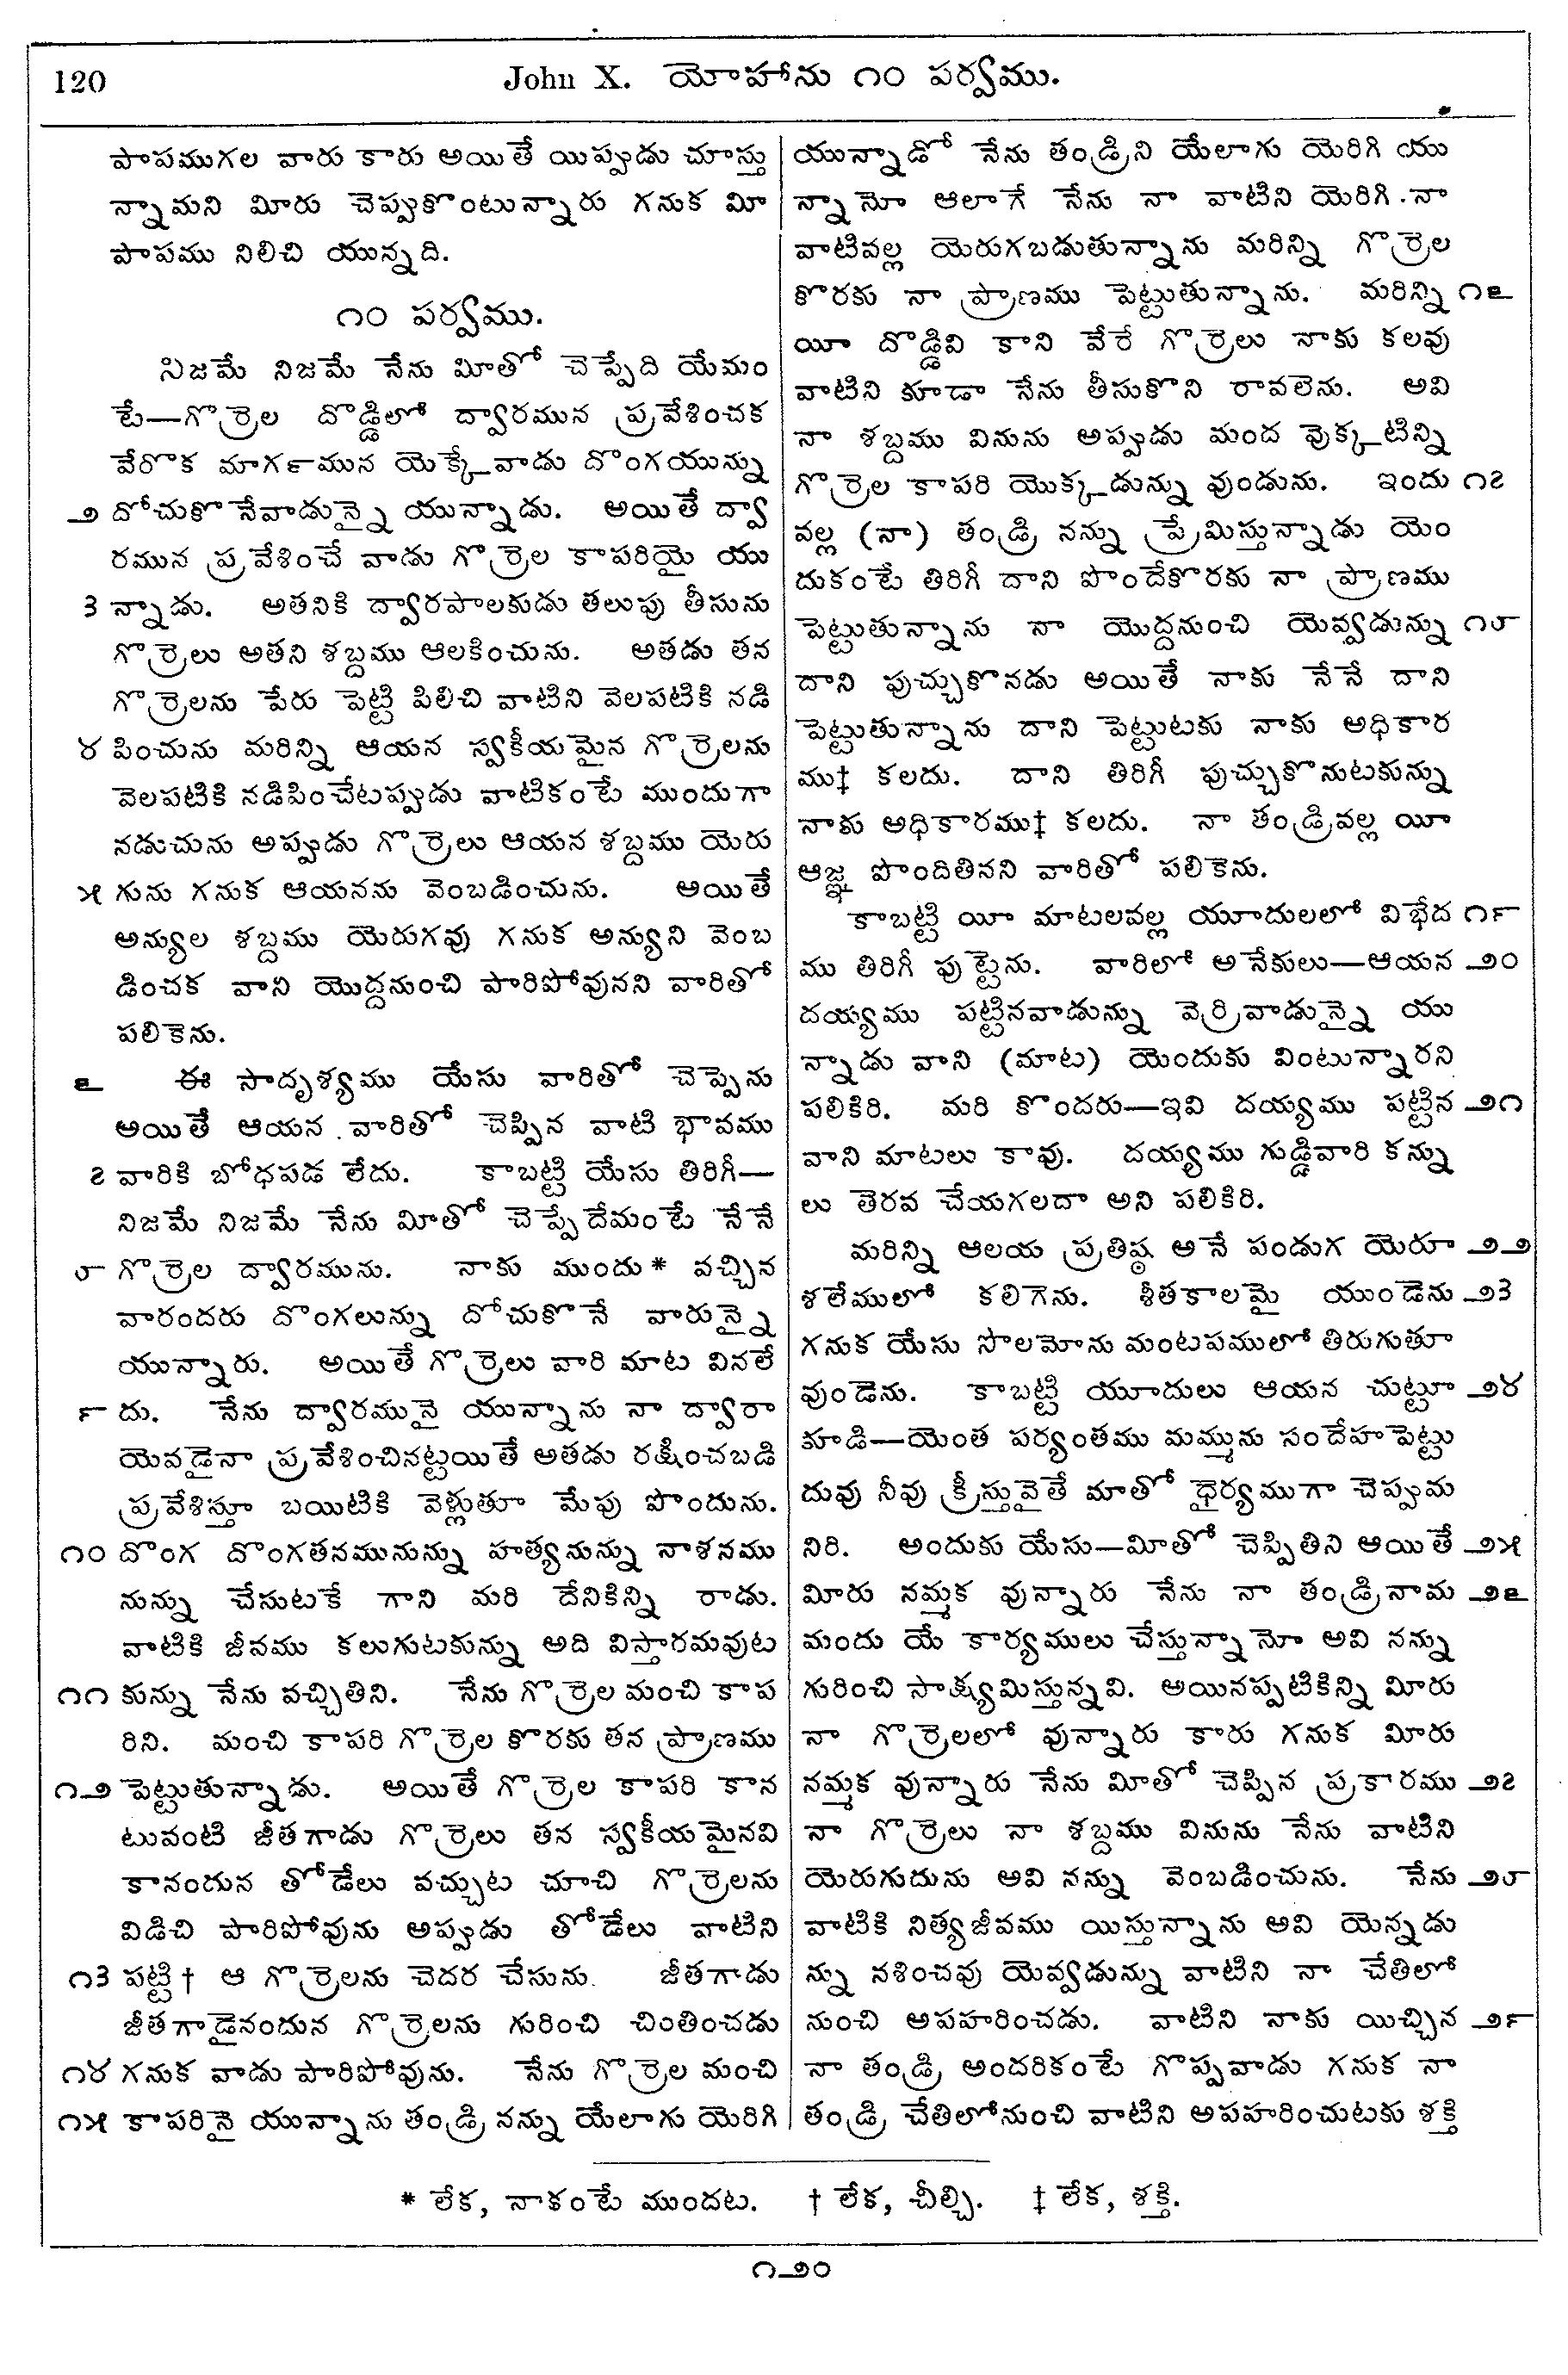 120
John X. యోహాను ౧౦ పర్వము.
పాపముగల వారు కారు అయితే యిప్పుడు చూస్తు
న్నామని మీరు చెప్పుకొంటున్నారు గనుక మీ
పాపము నిలిచి యున్నది.
౧౦ పర్వము.
నిజమే నిజమే నేను మీతో చెప్పేది యేమం
టే—గొర్రెల దొడ్డిలో ద్వారమున ప్రవేశించక
వేరొక మార్గమున యెక్కేవాడు దొంగయున్ను
౨ దోచుకొనేవాడునై యున్నాడు. అయితే ద్వా
రమున ప్రవేశించే వాడు గొర్రెల కాపరియై యు
౩ న్నాడు. అతనికి ద్వారపాలకుడు తలుపు తీసును
గొర్రెలు అతని శబ్దము ఆలకించును. అతడు తన
గొర్రెలను పేరు పెట్టి పిలిచి వాటిని వెలపటికి నడి
౪ పించును మరిన్ని ఆయన స్వకీయమైన గొర్రెలను
వెలపటికి నడిపించేటప్పుడు వాటికంటే ముందుగా
నడుచును అప్పుడు గొర్రెలు ఆయన శబ్దము యెరు
౫ గును గనుక ఆయనను వెంబడించును. అయితే
అన్యుల శబ్దము యెరుగవు గనుక అన్యుని వెంబ
డించక వాని యొద్దనుంచి పారిపోవునని వారితో
పలికెను.
౬ ఈ సాదృశ్యము యేసు వారితో చెప్పెను
అయితే ఆయన వారితో చెప్పిన వాటి భావము
౭ వారికి బోధపడ లేదు. కాబట్టి యేసు తిరిగీ—
నిజమే నిజమే నేను మీతో చెప్పేదేమంటే నేనే
౮ గొర్రెల ద్వారమును. నాకు ముందు* వచ్చిన
వారందరు దొంగలున్ను దోచుకొనే వారున్నై
యున్నారు. అయితే గొర్రెలు వారి మాట వినలే
౯ దు. నేను ద్వారమునై యున్నాను నా ద్వారా
యెవడైనా ప్రవేశించినట్టయితే అతడు రక్షించబడి
ప్రవేశిస్తూ బయిటికి వెళ్లుతూ మేపు పొందును.
౧౦ దొంగ దొంగతనమునున్ను హత్యనున్ను నాశనము
నున్ను చేసుటకే గాని మరి దేనికిన్ని రాడు.
వాటికి జీవము కలుగుటకున్ను అది విస్తారమవుట
౧౧ కున్ను నేను వచ్చితిని. నేను గొర్రెల మంచి కాప
రిని. మంచి కాపరి గొర్రెల కొరకు తన ప్రాణము
౧౨ పెట్టుతున్నాడు. అయితే గొర్రెల కాపరి కాన
టువంటి జీతగాడు గొర్రెలు తన స్వకీయమైనవి
కానందున తోడేలు వచ్చుట చూచి గొర్రెలను
విడిచి పారిపోవును అప్పుడు తోడేలు వాటిని
౧౩ పట్టి† ఆ గొర్రెలను చెదర చేసును. జీతగాడు
జీతగాడైనందున గొర్రెలను గురించి చింతించడు
౧౪ గనుక వాడు పారిపోవును. నేను గొర్రెల మంచి
౧౫ కాపరినై యున్నాను తండ్రి నన్ను యేలాగు యెరిగి
యున్నాడో నేను తండ్రిని యేలాగు యెరిగి యు
న్నానో ఆలాగే నేను నా వాటిని యెరిగి నా
వాటివల్ల యెరుగబడుతున్నాను మరిన్ని గొర్రెల
కొరకు నా ప్రాణము పెట్టుతున్నాను. మరిన్ని ౧౬
యీ దొడ్డివి కాని వేరే గొర్రెలు నాకు కలవు
వాటిని కూడా నేను తీసుకొని రావలెను. అవి
నా శబ్దము వినును అప్పుడు మంద వొక్కటిన్ని
గొర్రెల కాపరి యొక్కడున్ను వుండును. ఇందు ౧౭
వల్ల (నా) తండ్రి నన్ను ప్రేమిస్తున్నాడు యెం
దుకంటే తిరిగీ దాని పొందేకొరకు నా ప్రాణము
పెట్టుతున్నాను నా యొద్దనుంచి యెవ్వడున్ను ౧౮
దాని పుచ్చుకొనడు అయితే నాకు నేనే దాని
పెట్టుతున్నాను దాని పెట్టుటకు నాకు అధికార
ము‡ కలదు. దాని తిరిగీ పుచ్చుకొనుటకున్ను
నాకు అధికారము‡ కలదు. నా తండ్రివల్ల యీ
ఆజ్ఞ పొందితినని వారితో పలికెను.
కాబట్టి యీ మాటలవల్ల యూదులలో విభేద ౧౯
ము తిరిగీ పుట్టెను. వారిలో అనేకులు—ఆయన ౨౦
దయ్యము పట్టినవాడున్ను వెర్రివాడున్నై యు
న్నాడు వాని (మాట) యెందుకు వింటున్నారని
పలికిరి. మరి కొందరు—ఇవి దయ్యము పట్టిన ౨౧
వాని మాటలు కావు. దయ్యము గుడ్డివారి కన్ను
లు తెరవ చేయగలదా అని పలికిరి.
మరిన్ని ఆలయ ప్రతిష్ఠ అనే పండుగ యెరూ ౨౨
శలేములో కలిగెను. శీతకాలమై యుండెను ౨౩
గనుక యేసు సొలమోను మంటపములో తిరుగుతూ
వుండెను. కాబట్టి యూదులు ఆయన చుట్టూ ౨౪
కూడి—యెంత పర్యంతము మమ్మును సందేహపెట్టు
దువు నీవు క్రీస్తువైతే మాతో ధైర్యముగా చెప్పుమ
నిరి. అందుకు యేసు—మీతో చెప్పితిని అయితే ౨౫
మీరు నమ్మక వున్నారు నేను నా తండ్రినామ ౨౬
మందు యే కార్యములు చేస్తున్నానో అవి నన్ను
గురించి సాక్ష్యమిస్తున్నవి. అయినప్పటికిన్ని మీరు
నా గొర్రెలలో వున్నారు కారు గనుక మీరు
నమ్మక వున్నారు నేను మీతో చెప్పిన ప్రకారము ౨౭
నా గొర్రెలు నా శబ్దము వినును నేను వాటిని
యెరుగుదును అవి నన్ను వెంబడించును. నేను ౨౮
వాటికి నిత్యజీవము యిస్తున్నాను అవి యెన్నడు
న్ను నశించవు యెవ్వడున్ను వాటిని నా చేతిలో
నుంచి అపహరించడు. వాటిని నాకు యిచ్చిన ౨౯
నా తండ్రి అందరికంటే గొప్పవాడు గనుక నా
తండ్రి చేతిలోనుంచి వాటిని అపహరించుటకు శక్తి
* లేక, నాకంటే ముందట. † లేక, చీల్చి. ‡ లేక, శక్తి.
౧౨౦